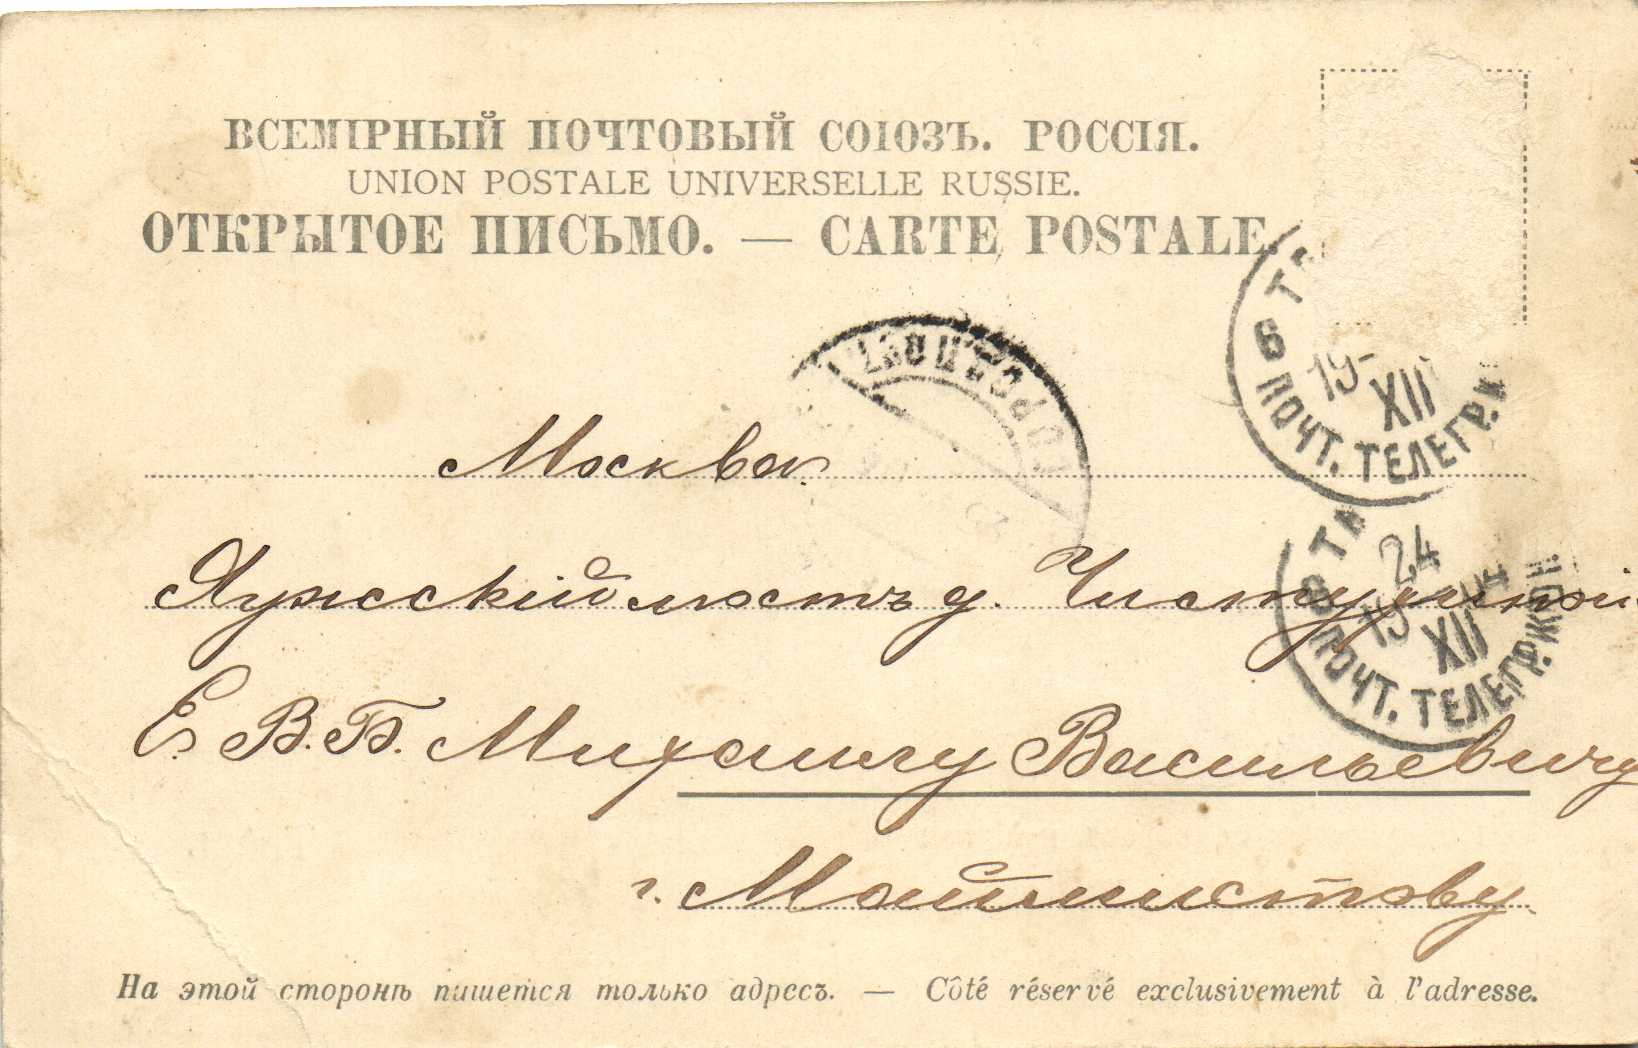 ВСЕМІРНЫЙ ПОЧТОВЫЙ СОЮЗЪ. РОССІЯ.
UNION POSTALE UNIVERSELLE RUSSIE.
ОТКРЫТОЕ ПИСЬМО. — CARTE POSTALE.
6 ПОЧТ. ТЕЛЕГР. К
19- XII
Москва.
Яузскій мостъ д.
24 XII
ПОЧТ. ТЕЛЕГР.
Е. В. Б. Михаилу Васильевичу
г. Маймистову.
На этой сторонѣ пишется только адресъ. — Côté réservé exclusivement à l'adresse.